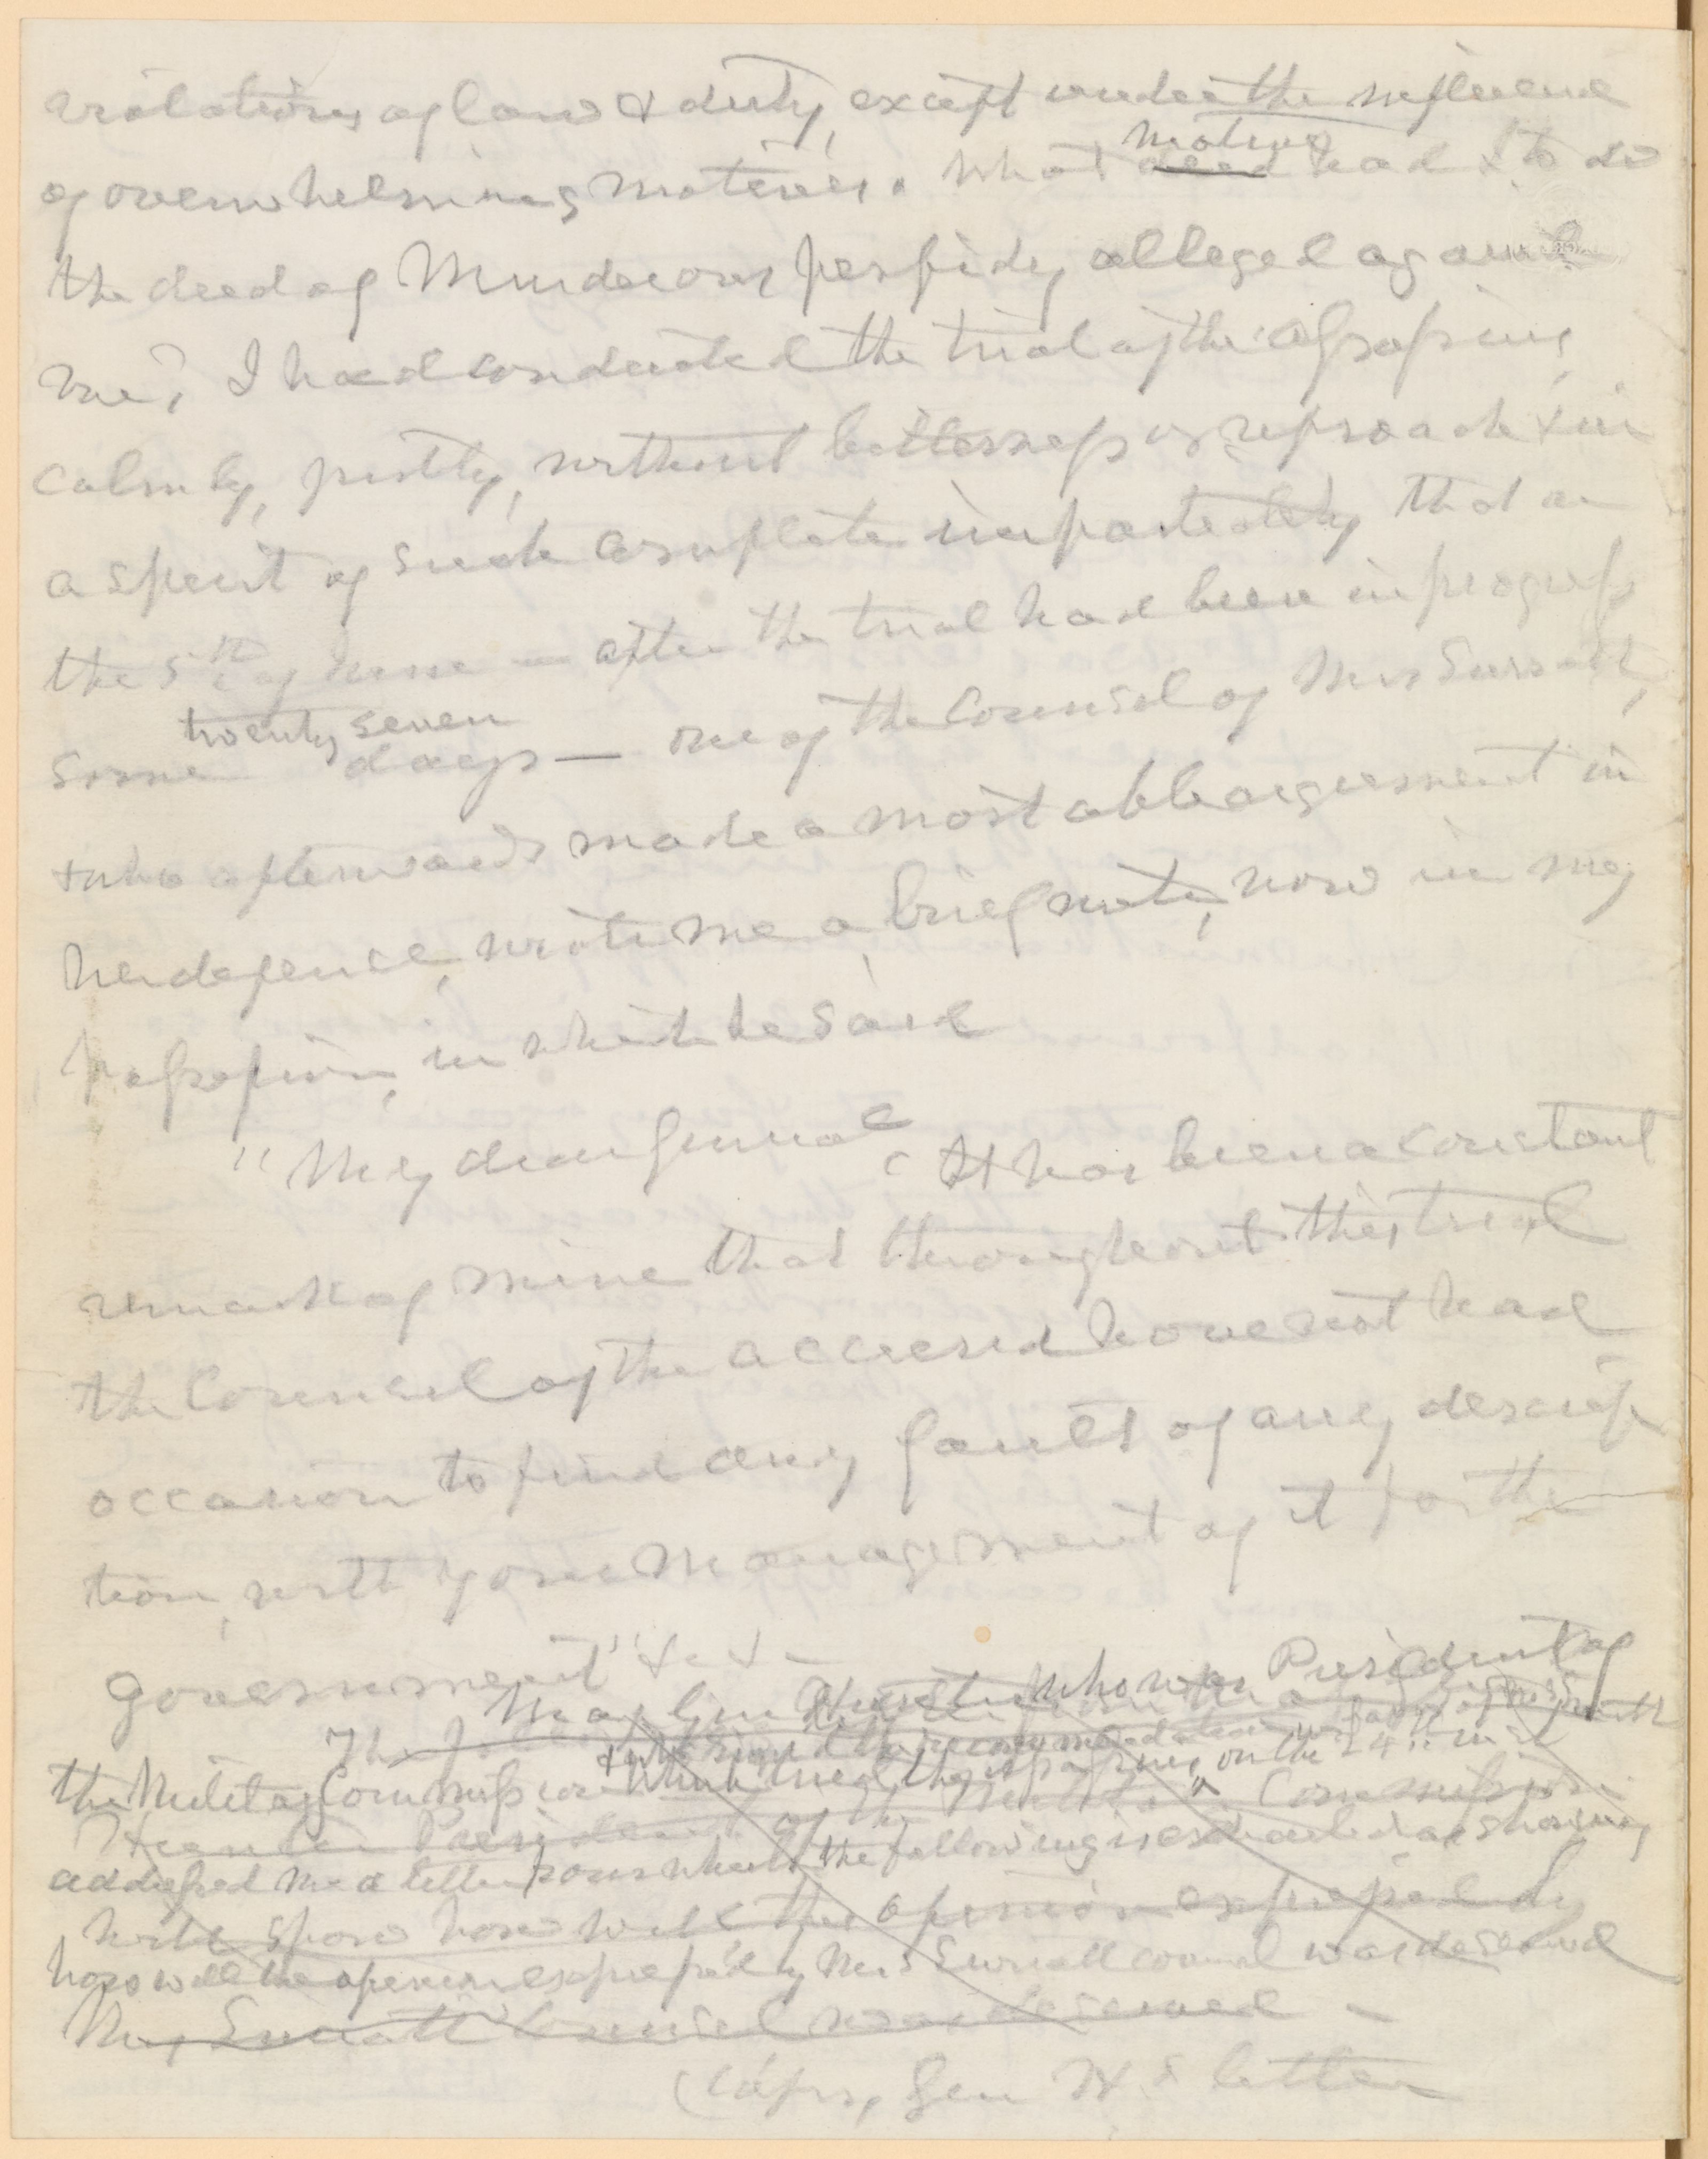 violations of law & duty, except under the influence
of overwhelming motives. What motive deed had I to do
the deed of Murderous perfidy alleged against
me? I had conducted the trial of the assassins
calmly, justly, without bitterness or reproach & in
a spirit of such complete impartiality that on
the 5th of June — after the trial had been in progress
some twenty seven days — one of the Counsel of Mrs Surratt,
& who afterwards made a most able argument in
her defence, wrote me a brief note, now in my
possession, in which he said
"My dear General, It has been a constant
remark of mine that throughout this trial
the Counsel of the accused have not had
occasion to find any fault of any descrip
tion, with your management of it for the
government" &c &
Maj Gen Hunter who was President of
The
the Military Commission which tried the assassins, on the
Hunter President of the Military Commission
addressed me a letter from which the following is extracted as showing
will show how well the opinion expressed by
how well the opinion expressed by Mrs Surratt counsel was deserved
Mrs Surratt's Counsel was deserved —
(Copy, Gen H's letter